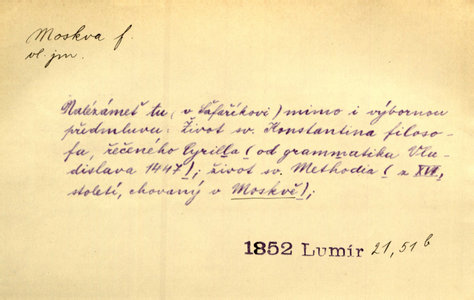 Moskva f.
vl. jm.
Nalézámeť tu (v Šafaříkovi) mimo i výbornou
předmluvu: Život sv. Konstantina filoso-
fa, řečeného Cyrilla (od grammatika Vla-
dislava 1447); život sv. Methodia (z XVI.
století, chovaný v Moskvě);
1852 Lumír 21, 51 b